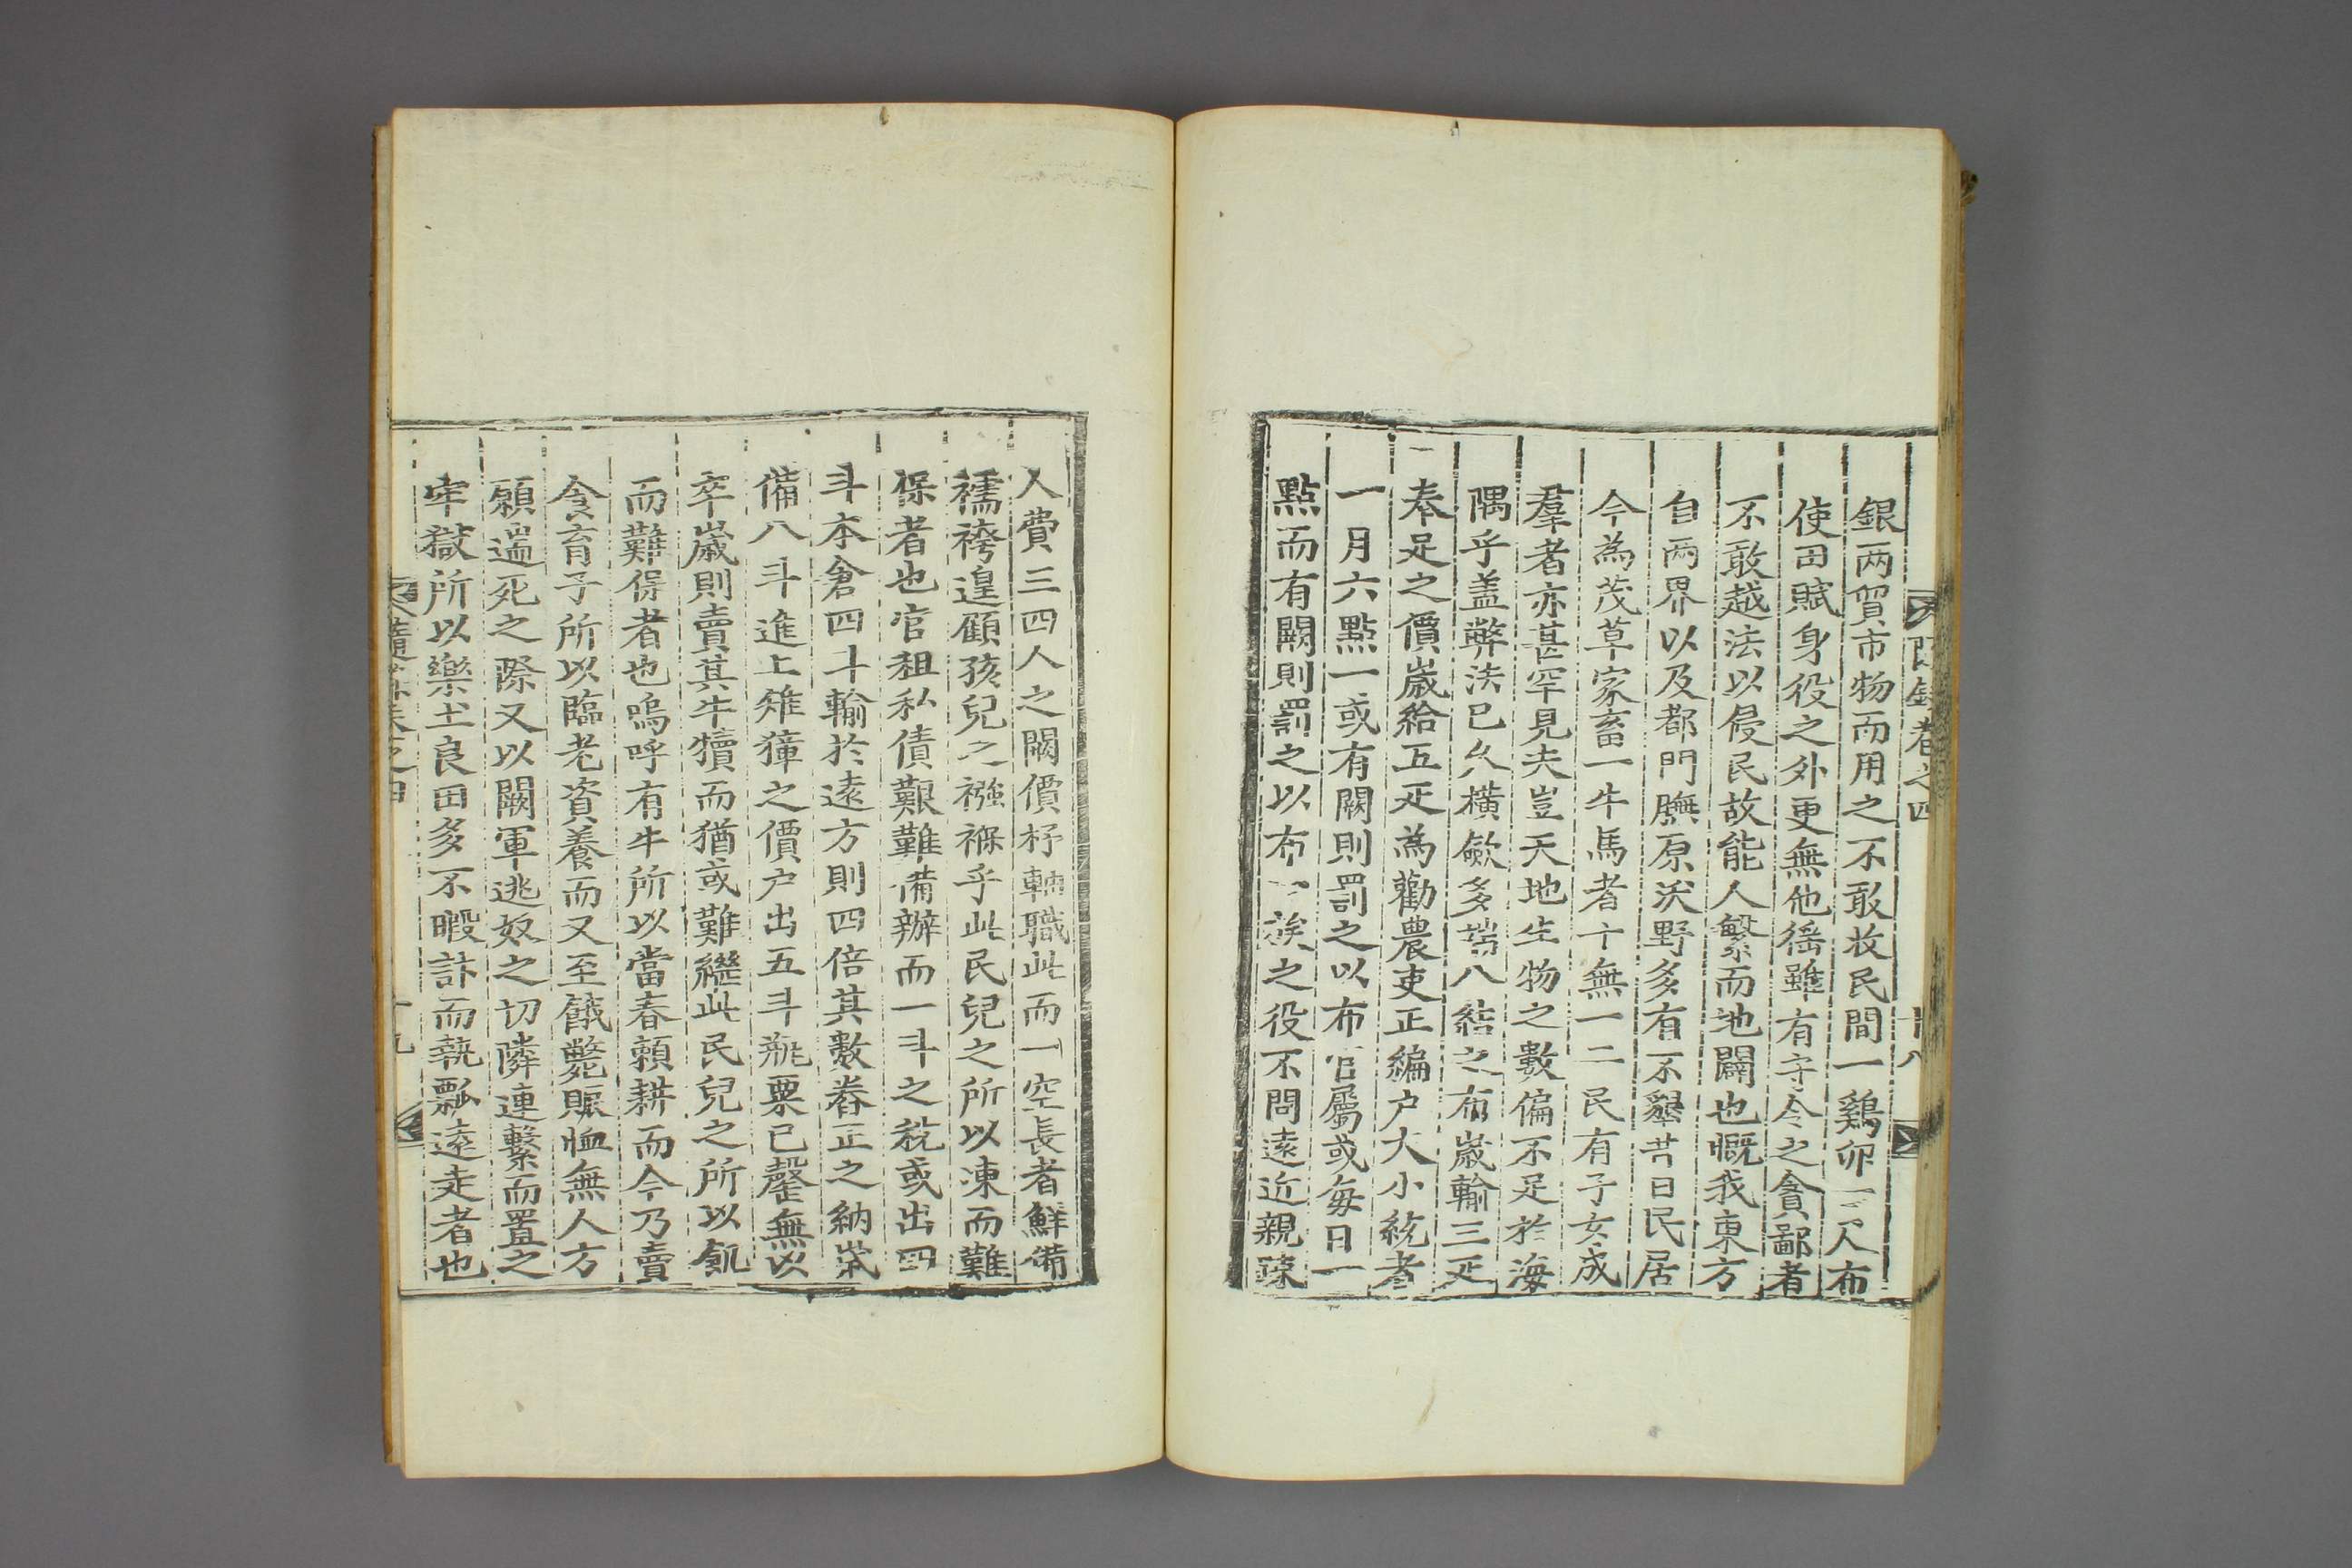 隨錄卷之四 十八
銀两貿市物而用之不敢收民間一鷄卵一尺布
使田賦身役之外更無他徭雖有守令之貪鄙者
不敢越法以侵民故能人繁而地闢也慨我東方
自两界以及都門膴原沃野多有不墾昔日民居
今為茂草家畜一牛馬者十無一二民有子女成
羣者亦甚罕見夫豈天地生物之數偏不足於海
隅乎盖弊法已久橫歛多端八結之布歲輸三疋
奉足之價歲給五疋為勸農吏正編户大小統者
一月六點一或有闕則罰之以布官屬或每日一
點而有闕則罰之以布一族之役不問遠近親疎
人費三四人之闕價杼軸職此而一空長者鮮備
襦袴遑顧孩兒之襁褓乎此民兒之所以凍而難
保者也官租私債艱難備辦而一斗之稅或出四
斗本倉四斗輸於遠方則四倍其數眷正之納歲
備八斗進上雉獐之價户出五斗甁粟已罄無以
卒歲則賣其牛犢而猶或難繼此民兒之所以飢
而難保者也嗚呼有牛所以當春賴耕而今乃賣
貪育子所以臨老資養而又至餓斃賑恤無人方
願遄死之際又以闕軍逃奴之切隣連繫而置之
牢獄所以樂土良田多不暇計而執瓢遠走者也
隨錄卷之四 十九